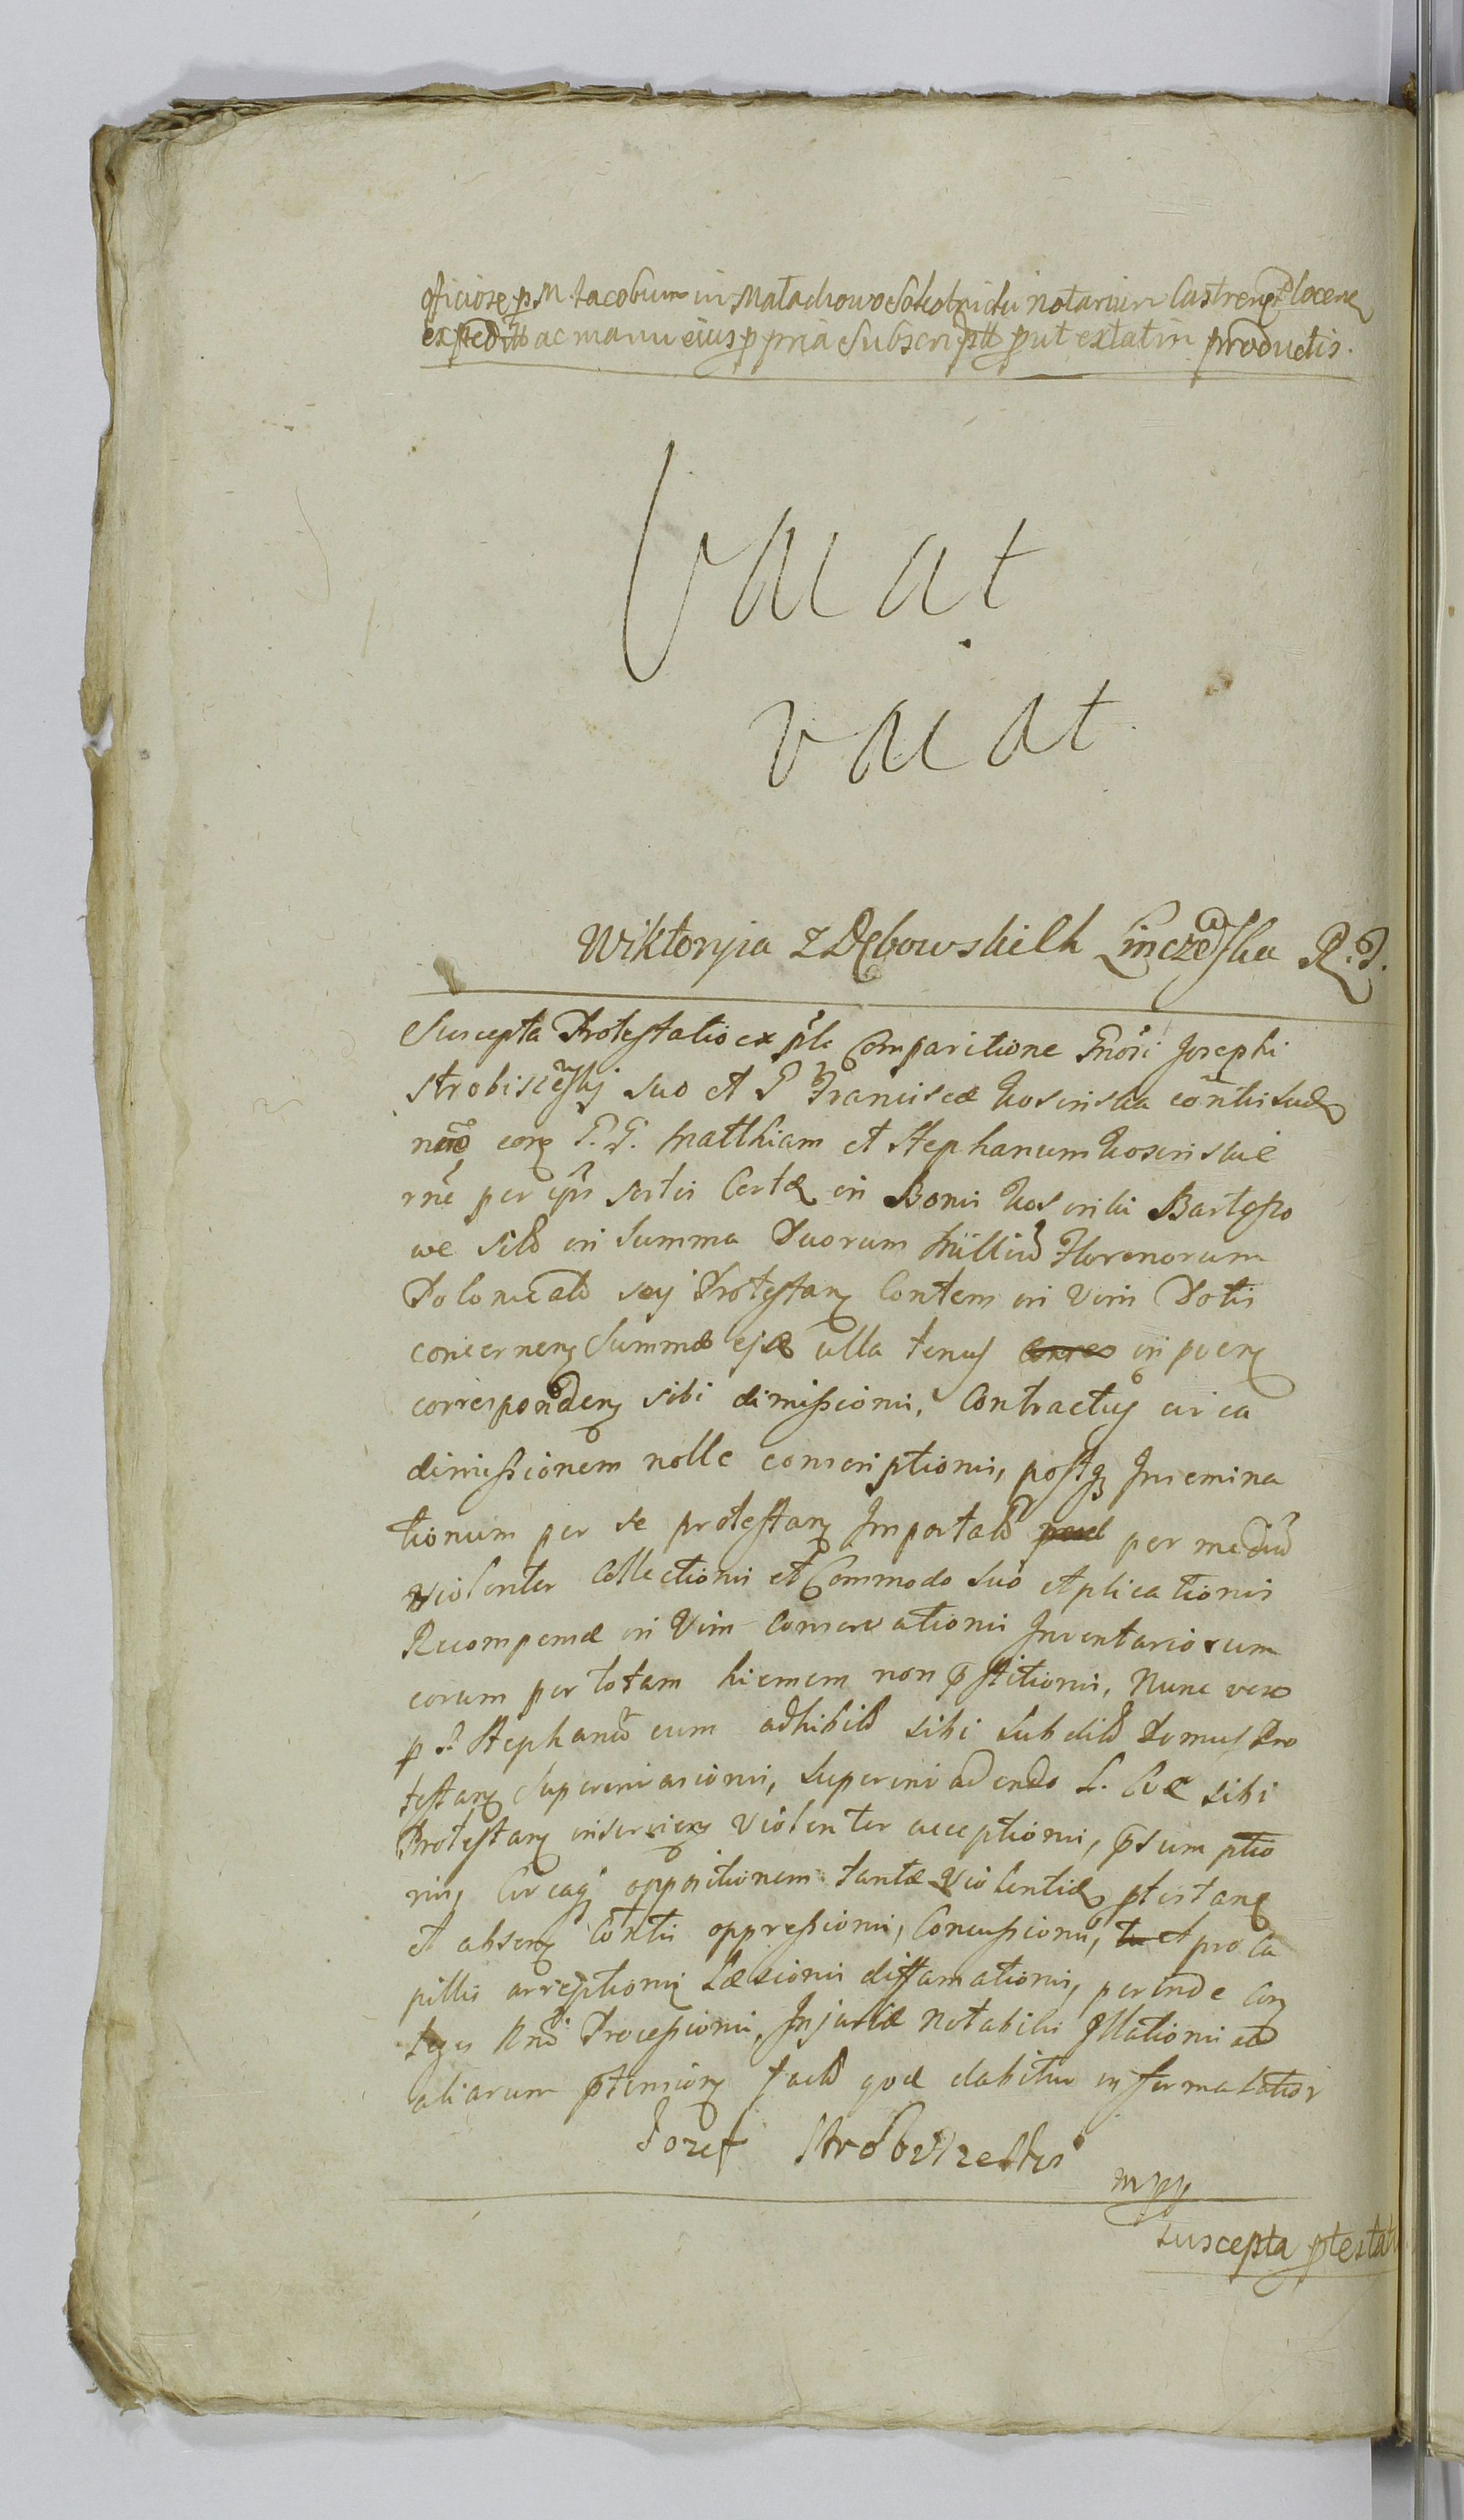 oficiose p M. Jacobum in Małachowo Sokolnicki notarium Castren Plocen
expedit ac manu eius ppria Subscript put extat in productis.
Vacat
vacat
Wiktoryia z Dębowskich Linczewska R.P.
Suscepta Protestatio ex psle Comparitione Gnosi Josephi
Strobiscewskj suo et P Franciscæ Kosinska contis
noie P. P. Matthiam et Stephanum Kosinskie
rne per ipsi sortis Certæ in Bonis Kosinki Barto
we in Summa Duorum Milliu Florenorum
Polonical Protestan Contem in Vim Dotis
concernen Summæ ejæ ulla tenus in poen
corresponden sibi dimissionis, Contractus circa
dimissionem nolle conscriptionis, postq Insemina
tionum per se protestan Importat per mediu
violenter Collectionis et Commodo suo Aplicationis
Recompensæ in Vim Conservationis Inventariorum
eorum per totam hiemem non pstitionis, Nunc vero
p P. Stephanu cum adhibit sibi Subdit domus Pro
testan Superinvasionis, superinvadendo sibi
Protestan inservien violenter acceptionis, psumptio
nis, Circaq oppositionem tantæ Violentiæ ptestan
et absen Contis oppressionis, Concussionis, et pro Ca
pillis arreptionis Læsionis diffamationis, perinde Con
leges Rni Processionis, Injuriæ Notabilis Illationis
aliarum ptension fact qvæ dabitur in formalatior
Jozef Strobiszewski
mpp
Suscepta ptestat